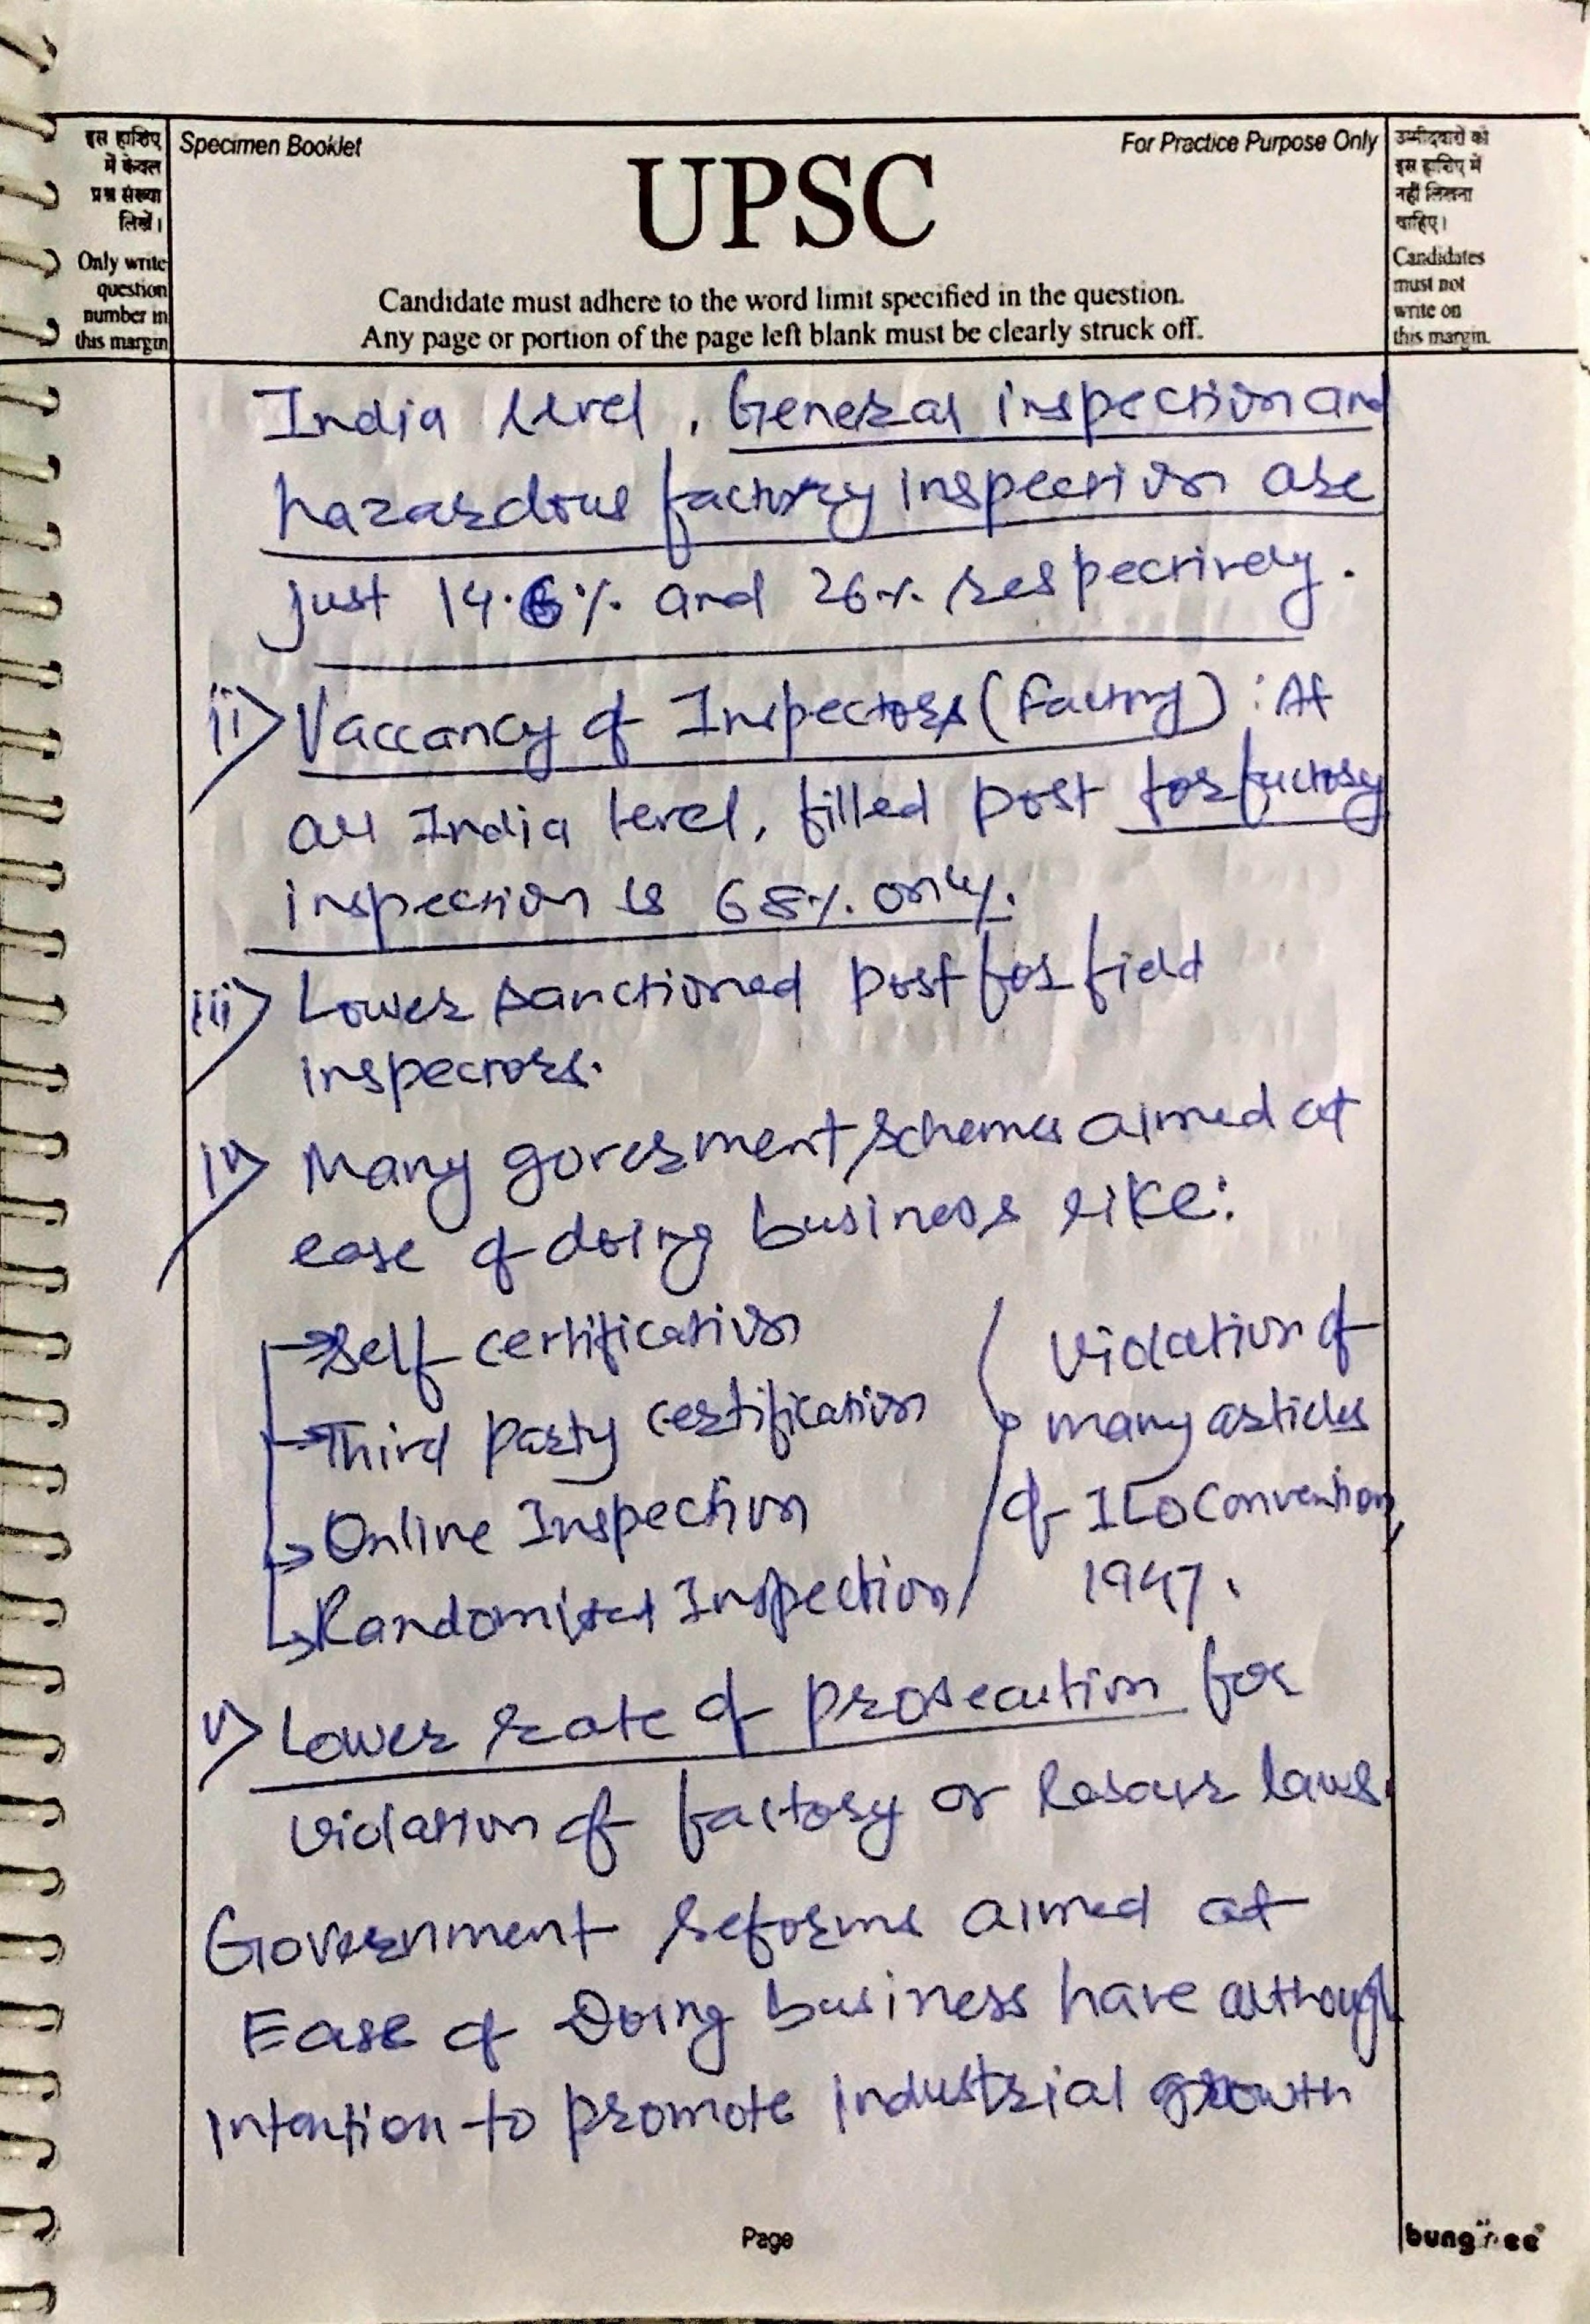 इस हाशिए
में केवल
प्रश्न संख्या
लिखें।
Only write
question
number in
this margin
Specimen Booklet
For Practice Purpose Only
UPSC
Candidate must adhere to the word limit specified in the question.
Any page or portion of the page left blank must be clearly struck off.
उम्मीदवारों को
इस हाशिए में
नहीं लिखना
चाहिए।
Candidates
must not
write on
this margin.
India level, General inspection and
hazardous factory inspection are
just 14.6% and 26% respectively.
ii) Vaccancy of Inspectors (factory) : At
all India level, filled post for factory
inspection is 68% only.
iii) Lower sanctioned post for field
inspectors.
iv) Many goverment schemes aimed at
ease of doing business like:
→ Self certification
→ Third party certification
→ Online Inspection
→ Randomised Inspection
Violation of
many articles
of ILO Convention,
1947.
v) Lower rate of prosecution for
violation of factory or labour laws.
Government reforms aimed at
Ease of Doing business have although
intention to promote industrial growth
Page